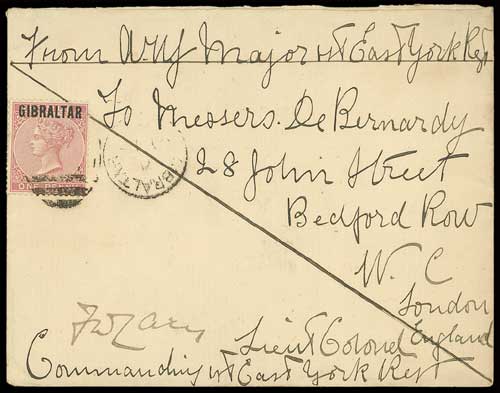 From A. Major 1st East York Regt
GIBRALTAR
ONE PENNY
GIBRALTAR
To Messers. De Bernardy
28 John Street
Bedford Row
W. C
London
England
Lieut Colonel
Commanding 1st East York Regt